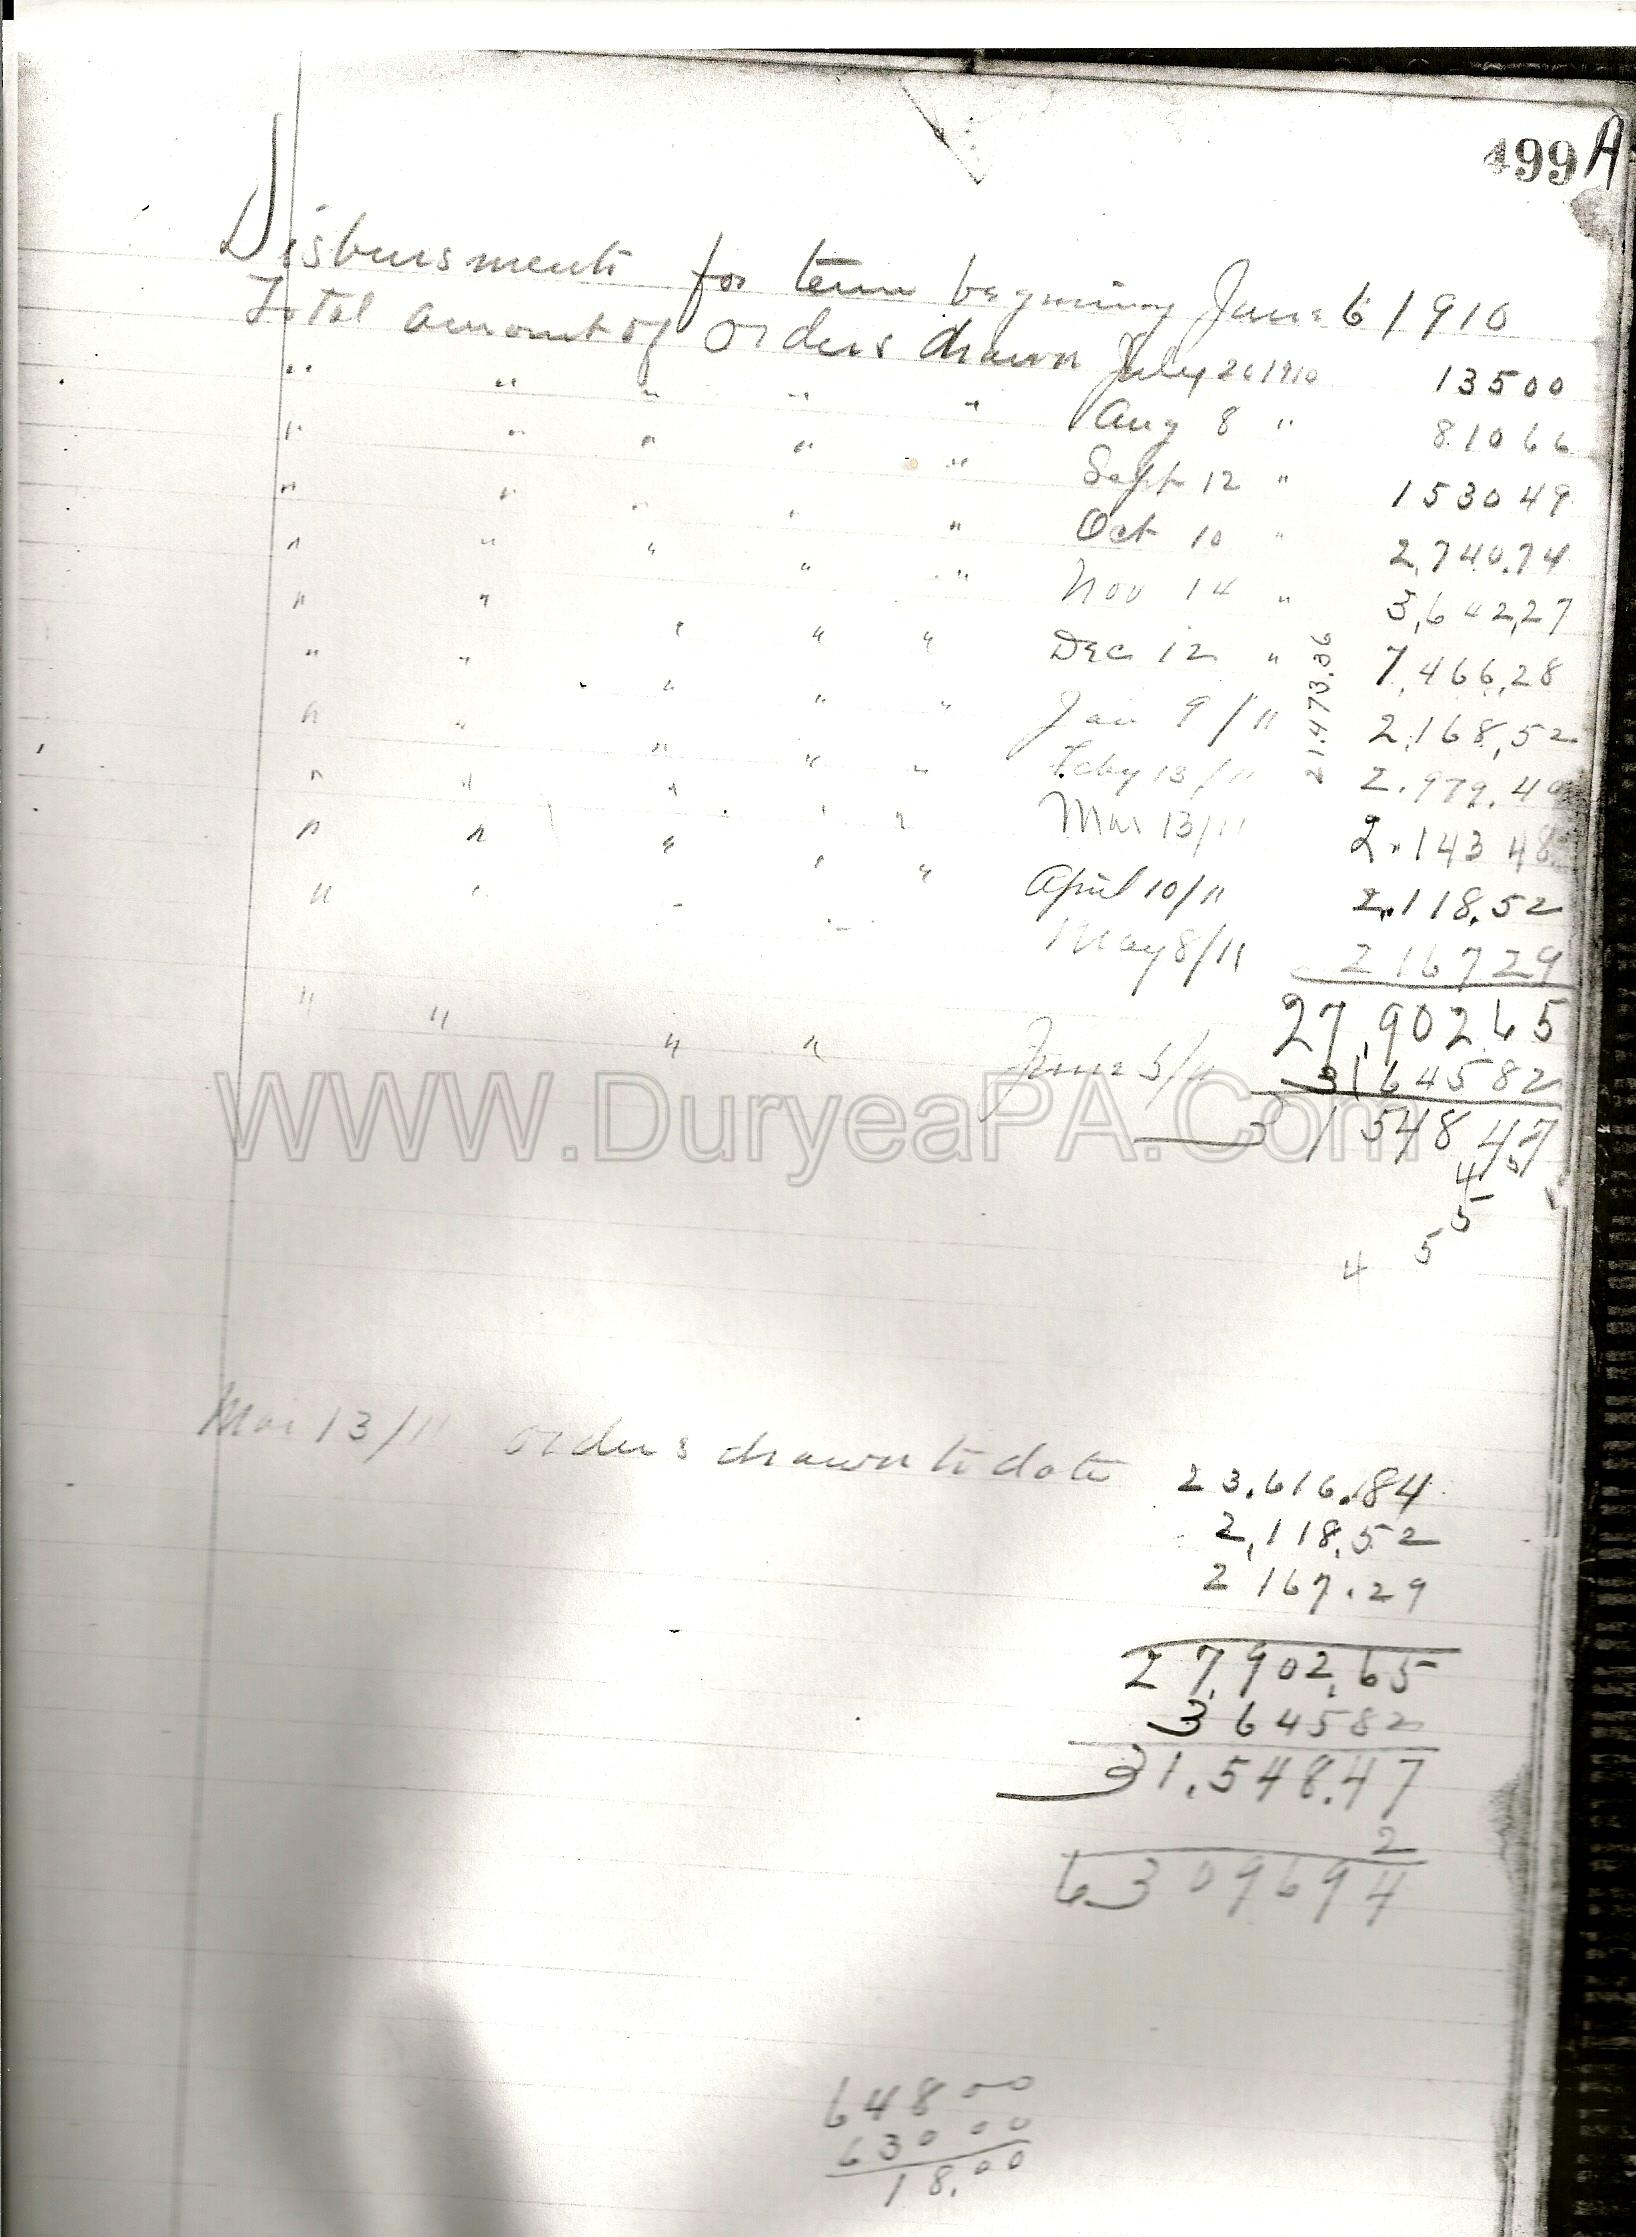 499 A
Disbursments for term begining June 6 1910
Total amount of orders drawn July 20 1910 13500
" " " " " Aug 8 " 81066
" " " " " Sept 12 " 153049
" " " " " Oct 10 " 2,740.74
" " " " " Nov 14 " 3,642,27
" " " " " Dec 12 " 7,466,28
21.473.36
" " " " " Jan 9/11 2,168,52
" " " " " Feby 13/11 2.979.40
" " " " " Mar 13/11 2.143 48
" " " " " April 10/11 2,118,52
" " " " May 8/11 216729
27,902.65
" " " " June 5/11 364582
31548 47
4 5
5
4 5
WWW.DuryeaPA.Com
Mar 13/11 orders drawn to date 23.616.84
2,118,52
2 167.29
27,902,65
364582
31.548.47
2
6309694
64800
63000
18.00